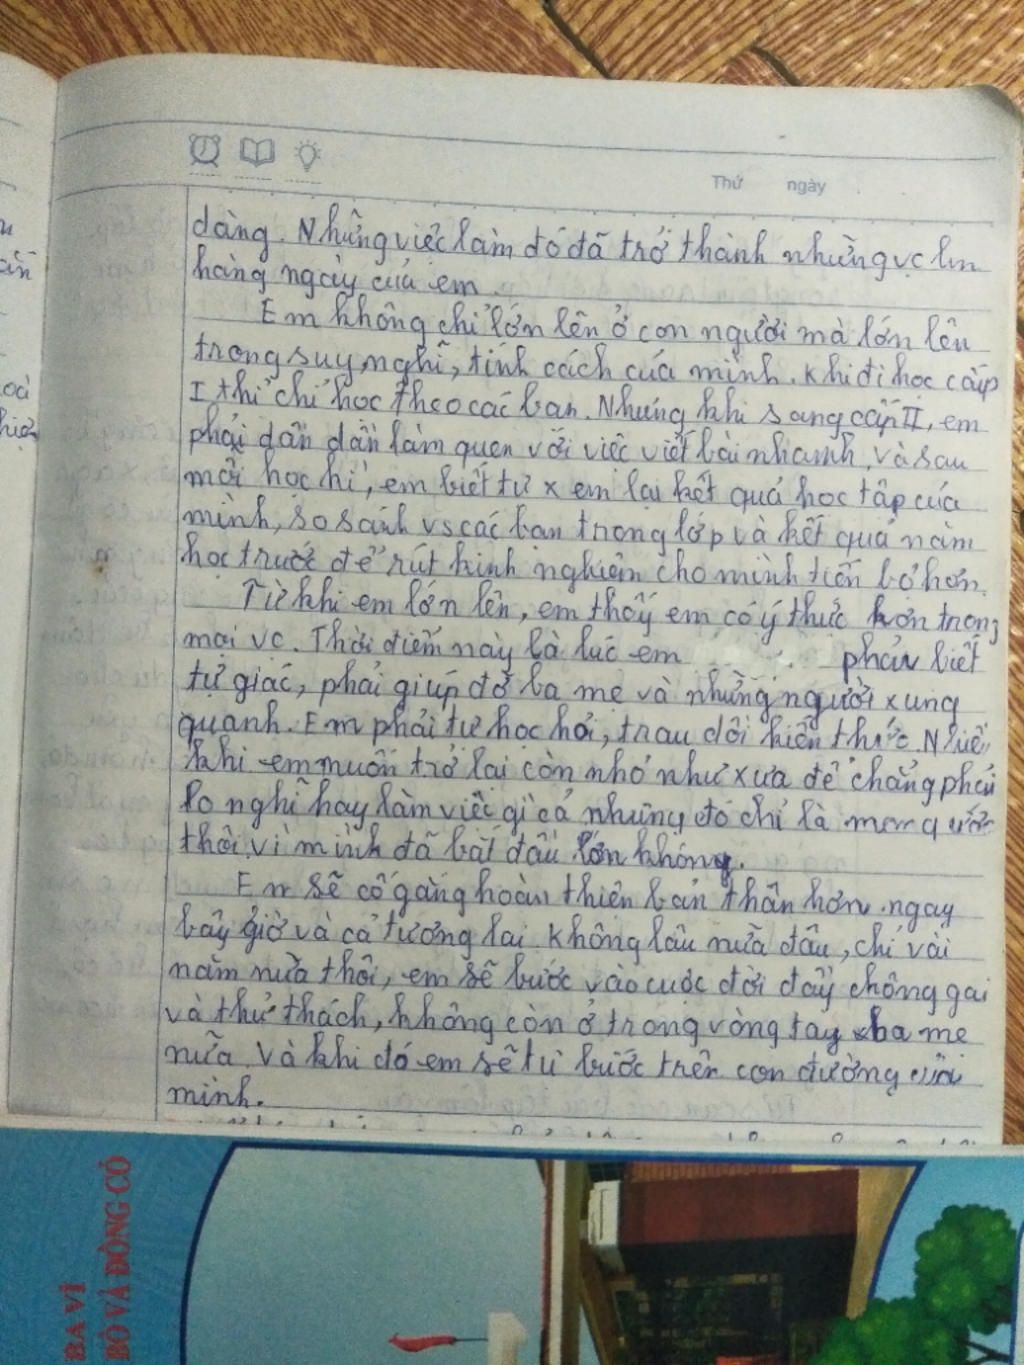 Thứ ngày
dàng. Những việc làm đó đã trở thành những vc làm
hàng ngày của em.
Em không chỉ lớn lên ở con người mà lớn lên
trong suy nghĩ, tính cách của mình. Khi đi học cấp
I thì chỉ học theo các bạn. Nhưng khi sang cấp II, em
phải dần dần làm quen với việc viết bài nhanh, và sau
mỗi học kì, em biết tự xem lại kết quả học tập của
mình, so sánh vs các bạn trong lớp và kết quả năm
học trước để rút kinh nghiệm cho mình tiến bộ hơn.
Từ khi em lớn lên, em thấy em có ý thức hơn trong
mọi vc. Thời điểm này là lúc em phải biết
tự giác, phải giúp đỡ ba mẹ và những người xung
quanh. Em phải tự học hỏi, trau dồi kiến thức. Nhiều
khi em muốn trở lại còn nhỏ như xưa để chẳng phải
lo nghĩ hay làm việc gì cả nhưng đó chỉ là mong ước
thôi vì mình đã bắt đầu lớn khôn.
Em sẽ cố gắng hoàn thiện bản thân hơn ngay
bây giờ và cả tương lai. Không lâu nữa đâu, chỉ vài
năm nữa thôi, em sẽ bước vào cuộc đời đầy chông gai
và thử thách, không còn ở trong vòng tay ba mẹ
nữa. Và khi đó em sẽ tự bước trên con đường của
mình.
BA VÌ
BÒ VÀ ĐỒNG CỎ